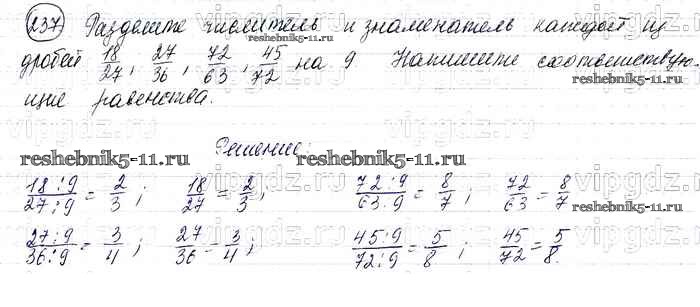 237 Разделите числитель и знаменатель каждой из
дробей 18/27, 27/36, 72/63, 45/72 на 9 Напишите соответствую-
щие равенства.
Решение:
reshebnik5-11.ru reshebnik5-11.ru
18:9/27:9 = 2/3; 18/27 = 2/3; 72:9/63:9 = 8/7; 72/63 = 8/7
reshebnik5-11.ru
27:9/36:9 = 3/4; 27/36 = 3/4; 45:9/72:9 = 5/8; 45/72 = 5/8.